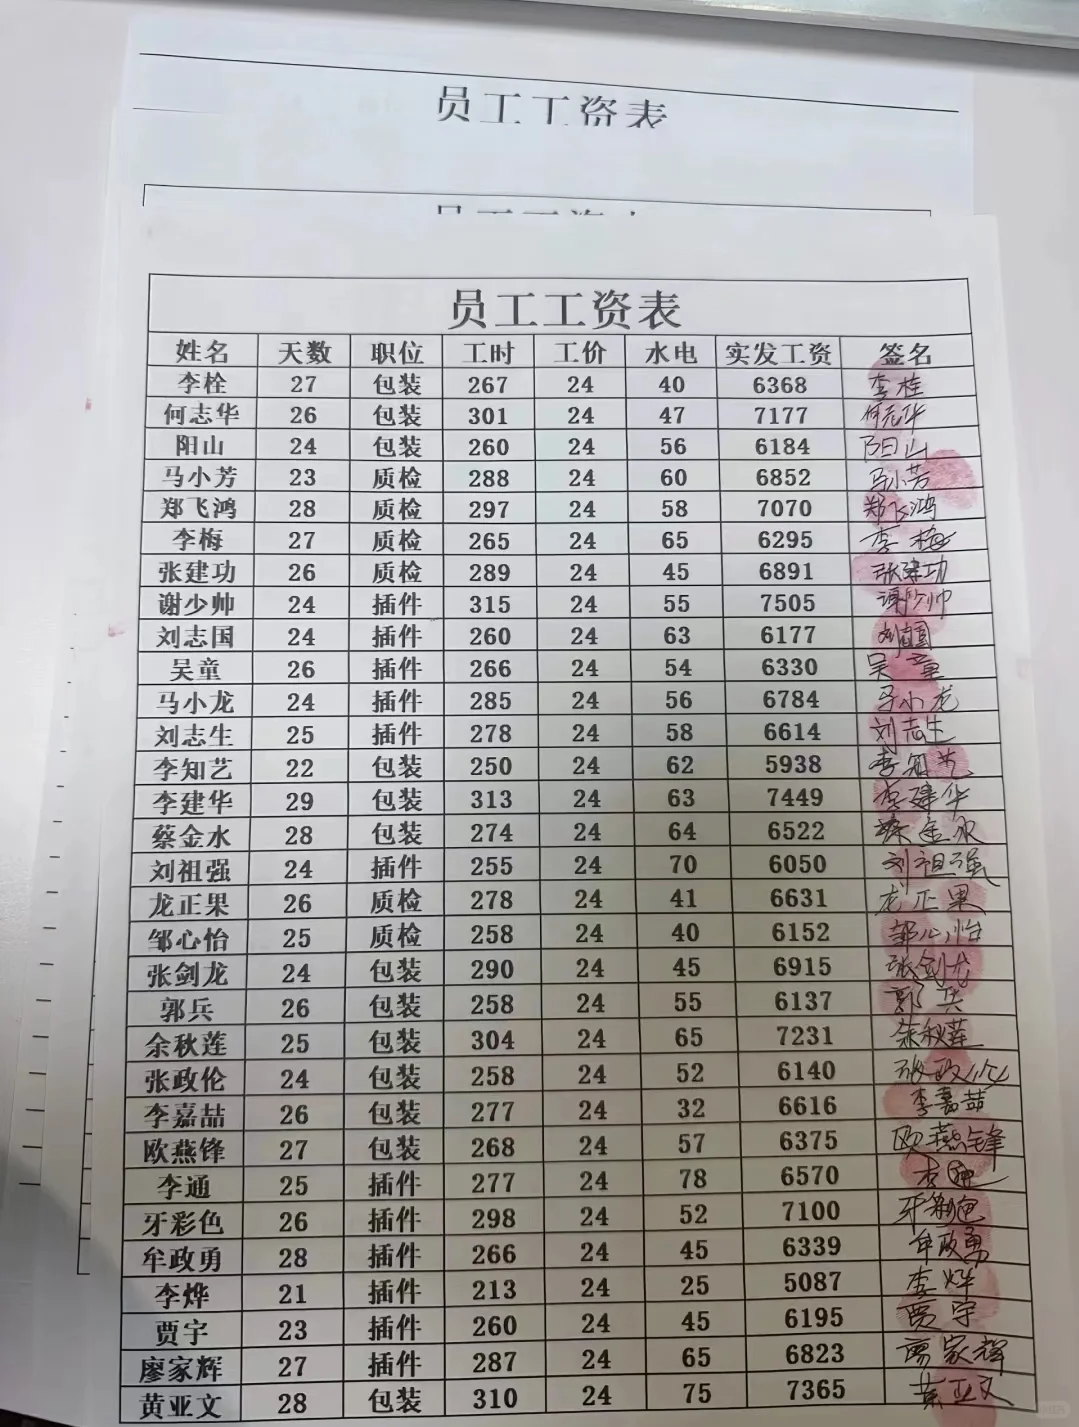 员工工资表
员工工资表
姓名 天数 职位 工时 工价 水电 实发工资 签名
李栓 27 包装 267 24 40 6368 李栓
何志华 26 包装 301 24 47 7177 何志华
阳山 24 包装 260 24 56 6184 阳山
马小芳 23 质检 288 24 60 6852 马小芳
郑飞鸿 28 质检 297 24 58 7070 郑飞鸿
李梅 27 质检 265 24 65 6295 李梅
张建功 26 质检 289 24 45 6891 张建功
谢少帅 24 插件 315 24 55 7505 谢少帅
刘志国 24 插件 260 24 63 6177 刘志国
吴童 26 插件 266 24 54 6330 吴童
马小龙 24 插件 285 24 56 6784 马小龙
刘志生 25 插件 278 24 58 6614 刘志生
李知艺 22 包装 250 24 62 5938 李知艺
李建华 29 包装 313 24 63 7449 李建华
蔡金水 28 包装 274 24 64 6522 蔡金水
刘祖强 24 插件 255 24 70 6050 刘祖强
龙正果 26 质检 278 24 41 6631 龙正果
邹心怡 25 质检 258 24 40 6152 邹心怡
张剑龙 24 包装 290 24 45 6915 张剑龙
郭兵 26 包装 258 24 55 6137 郭兵
余秋莲 25 包装 304 24 65 7231 余秋莲
张政伦 24 包装 258 24 52 6140 张政伦
李嘉喆 26 包装 277 24 32 6616 李嘉喆
欧燕锋 27 包装 268 24 57 6375 欧燕锋
李通 25 插件 277 24 78 6570 李通
牙彩色 26 插件 298 24 52 7100 牙彩色
牟政勇 28 插件 266 24 45 6339 牟政勇
李烨 21 插件 213 24 25 5087 李烨
贾宇 23 插件 260 24 45 6195 贾宇
廖家辉 27 插件 287 24 65 6823 廖家辉
黄亚文 28 包装 310 24 75 7365 黄亚文